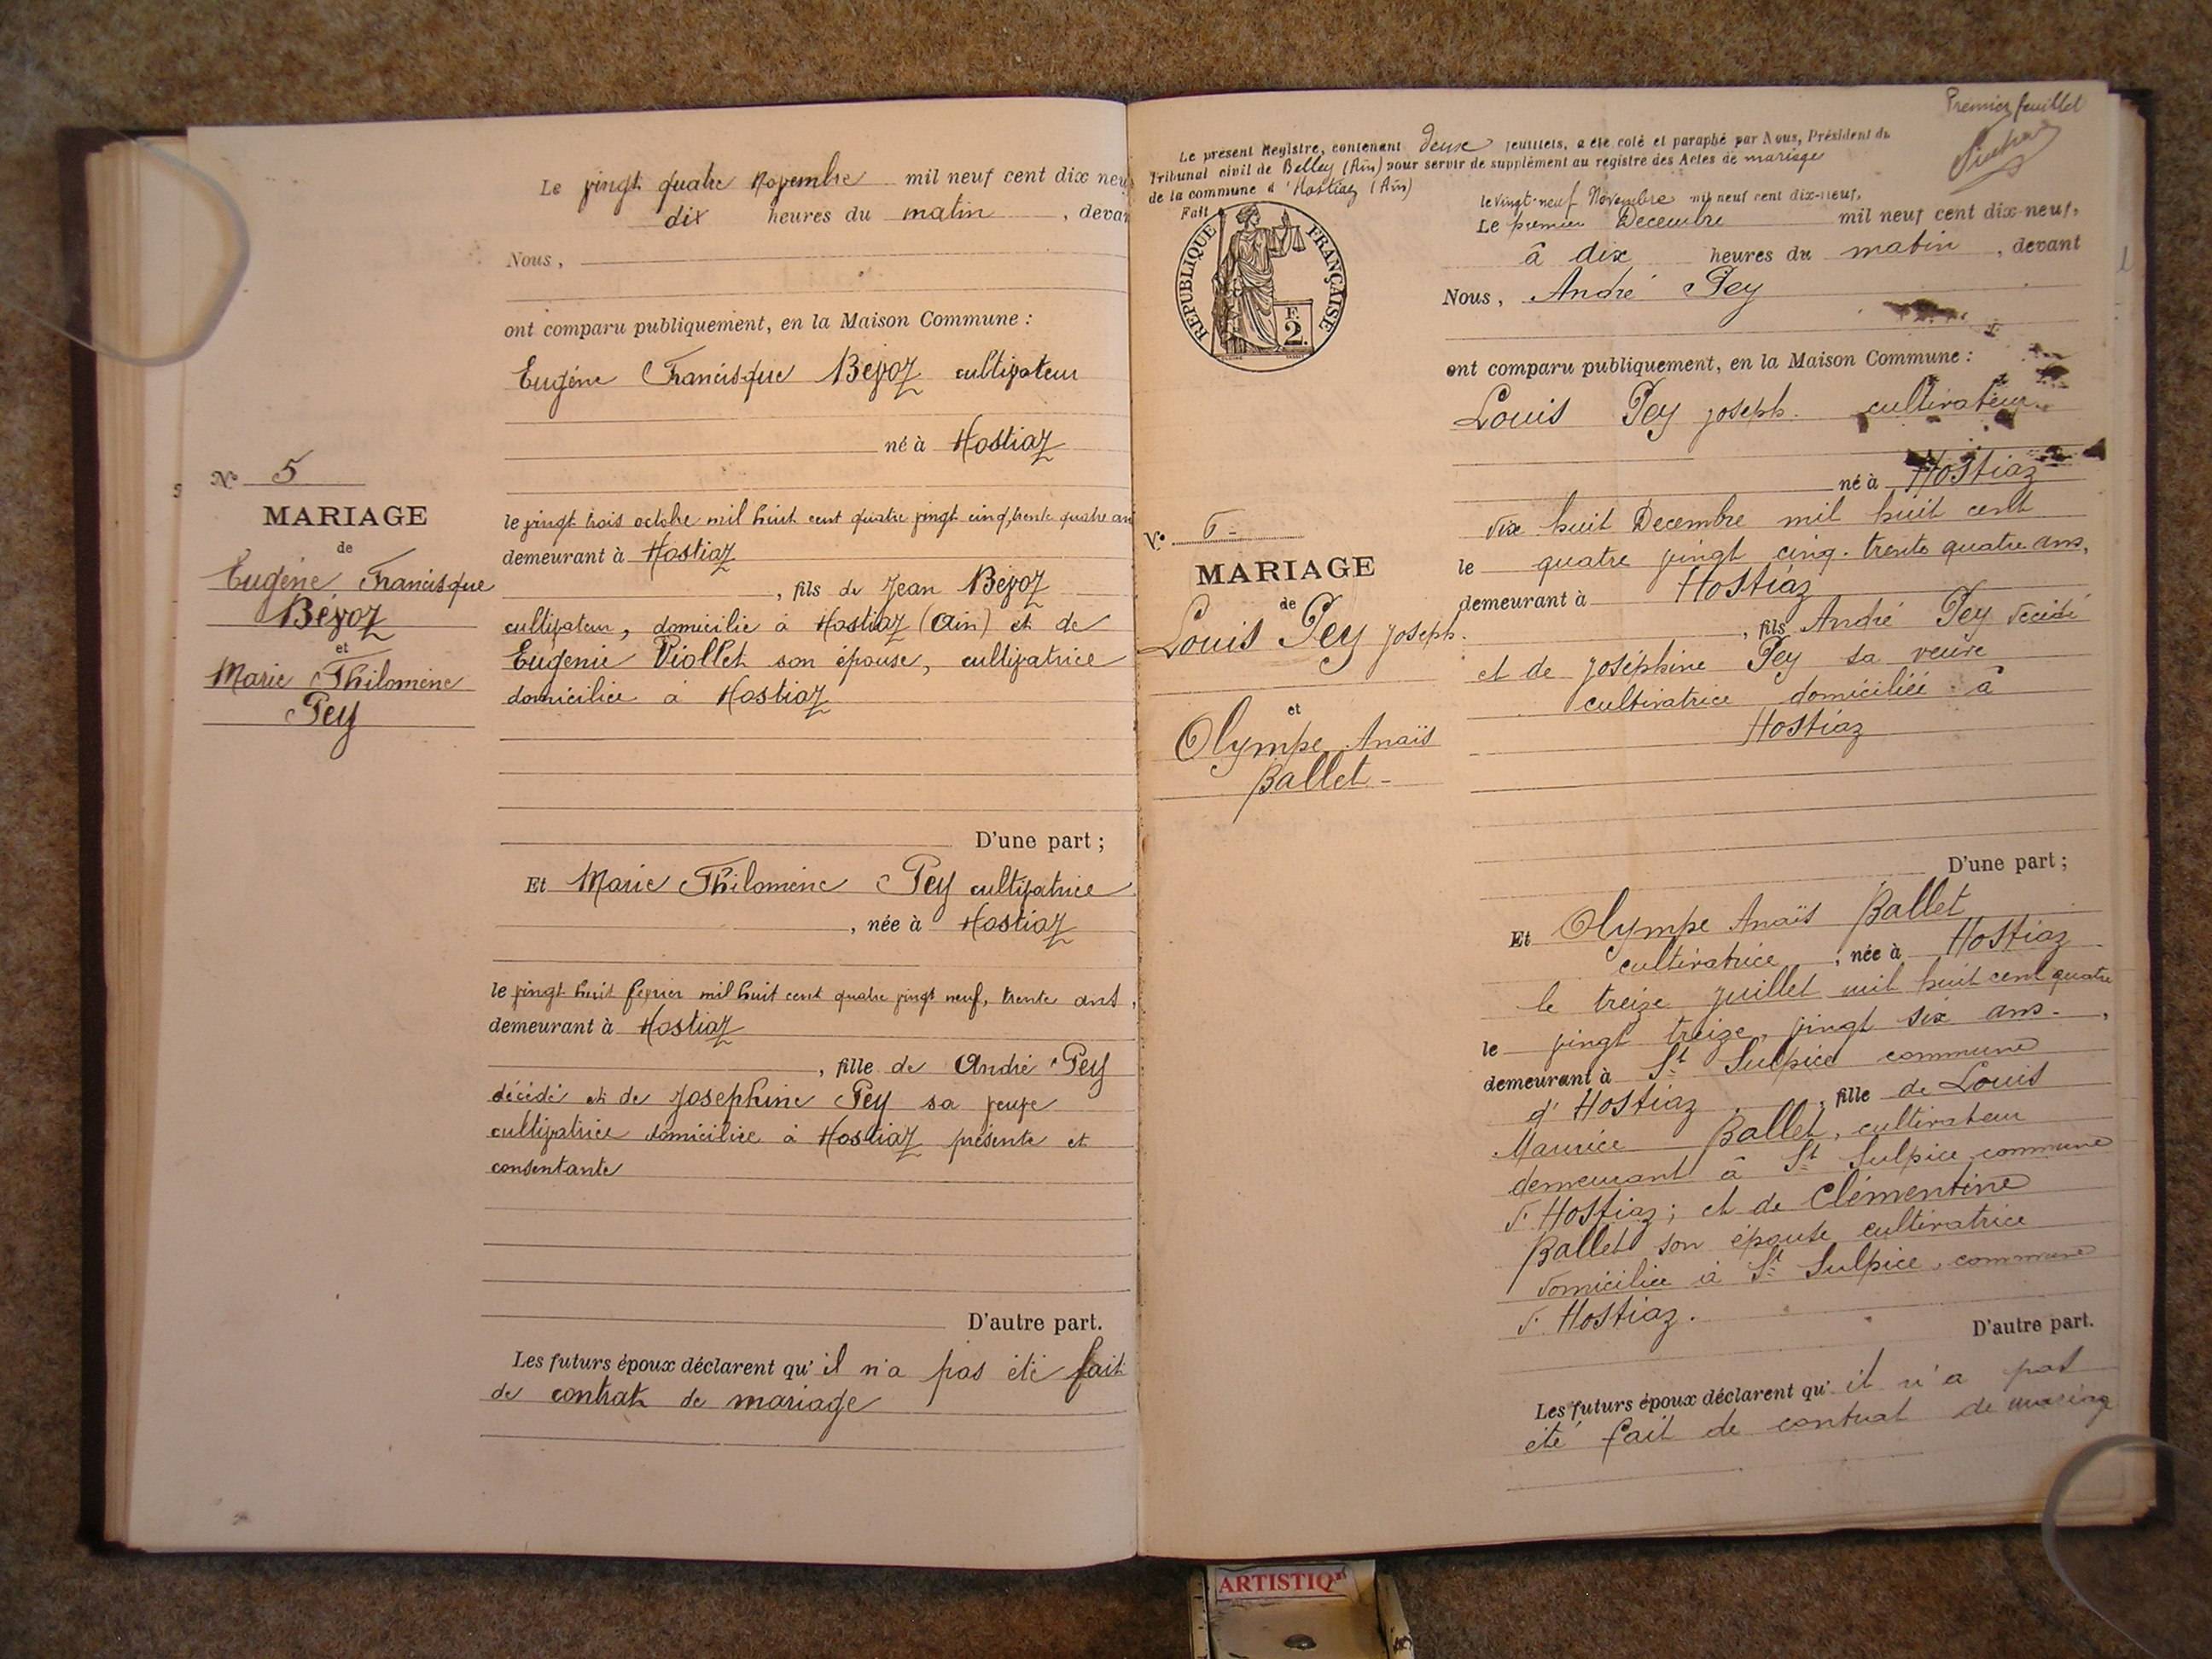 Le vingt quatre Novembre mil neuf cent dix neuf
dix heures du matin, devan
Nous,
ont comparu publiquement, en la Maison Commune :
Eugéne Francisque Bévoz cultivateur
né à Hostiaz
le vingt trois octobre mil huit cent quatre vingt cinq, trente quatre ans
demeurant à Hostiaz
, fils de Jean Bévoz
cultivateur, domicilié à Hostiaz (Ain) et de
Eugenie Viollet son épouse, cultivatrice
domiciliée à Hostiaz
D'une part ;
Et Marie Philoméne Pey cultivatrice
, née à Hostiaz
le vingt huit fevrier mil huit cent quatre vingt neuf, trente ans,
demeurant à Hostiaz
, fille de André Pey
décédé et de Josephine Pey sa veuve
cultivatrice domiciliée à Hostiaz présente et
consentante
D'autre part.
Les futurs époux déclarent qu'il n'a pas été fait
de contrat de mariage
No 5
MARIAGE
de
Eugéne Francisque
Bévoz
et
Marie Philoméne
Pey
Premier feuillet
Le présent Registre, contenant deux feuillets, a été coté et paraphé par Nous, Président du
Tribunal civil de Belley (Ain) pour servir de supplément au registre des Actes de mariage
de la commune d'Hostiaz (Ain)
Fait le vingt-neuf Novembre mil neuf cent dix-neuf.
RÉPUBLIQUE FRANÇAISE
F.
2.
Le premier Decembre mil neuf cent dix-neuf,
à dix heures du matin, devant
Nous, André Pey
ont comparu publiquement, en la Maison Commune :
Louis Pey Joseph. cultivateur
né à Hostiaz
dix huit Decembre mil huit cent
le quatre vingt cinq. trente quatre ans,
demeurant à Hostiaz
, fils André Pey décédé
et de Joséphine Pey sa veuve
cultivatrice domiciliée à
Hostiaz
D'une part ;
Et Olympe Anaïs Ballet
cultivatrice, née à Hostiaz
le treize Juillet mil huit cent quatre
le vingt treize, vingt six ans.,
demeurant à St Sulpice commune
d'Hostiaz, fille de Louis
Maurice Ballet, cultivateur
demeurant à St Sulpice commune
d'Hostiaz; et de Clémentine
Ballet son épouse cultivatrice
domiciliée à St Sulpice, commune
d'Hostiaz.
D'autre part.
Les futurs époux déclarent qu'il n'a pas
été fait de contrat de mariage
No 6
MARIAGE
de
Louis Pey Joseph.
et
Olympe Anaïs
Ballet
ARTISTIQ